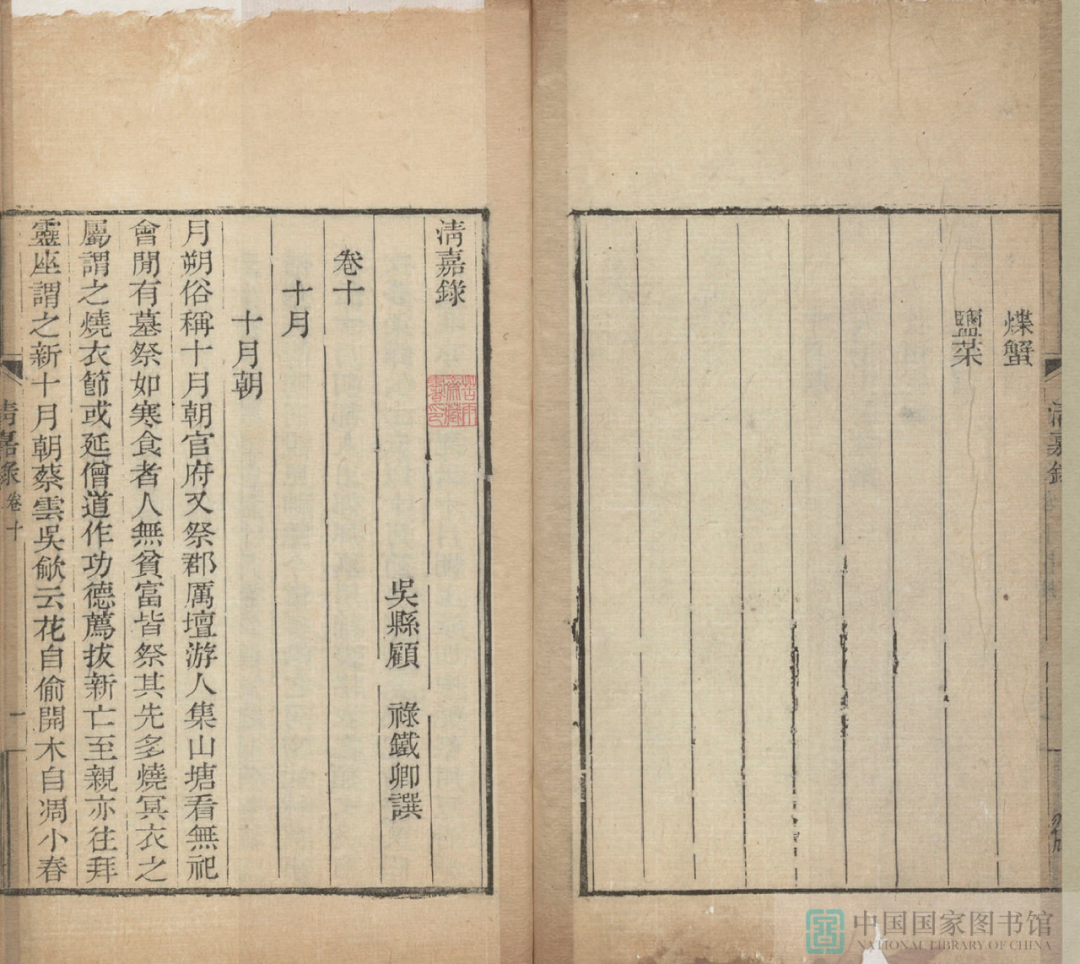 煠蟹
鹽菜
清嘉錄
清嘉錄
吳縣顧 祿鐵卿譔
卷十
十月
十月朝
月朔俗稱十月朝官府又祭郡厲壇游人集山塘看無祀
會閒有墓祭如寒食者人無貧富皆祭其先多燒冥衣之
屬謂之燒衣節或延僧道作功德薦拔新亡至親亦往拜
靈座謂之新十月朝蔡雲吳歈云花自偷開木自凋小春
清嘉錄 卷十 一
中国国家图书馆
NATIONAL LIBRARY OF CHINA